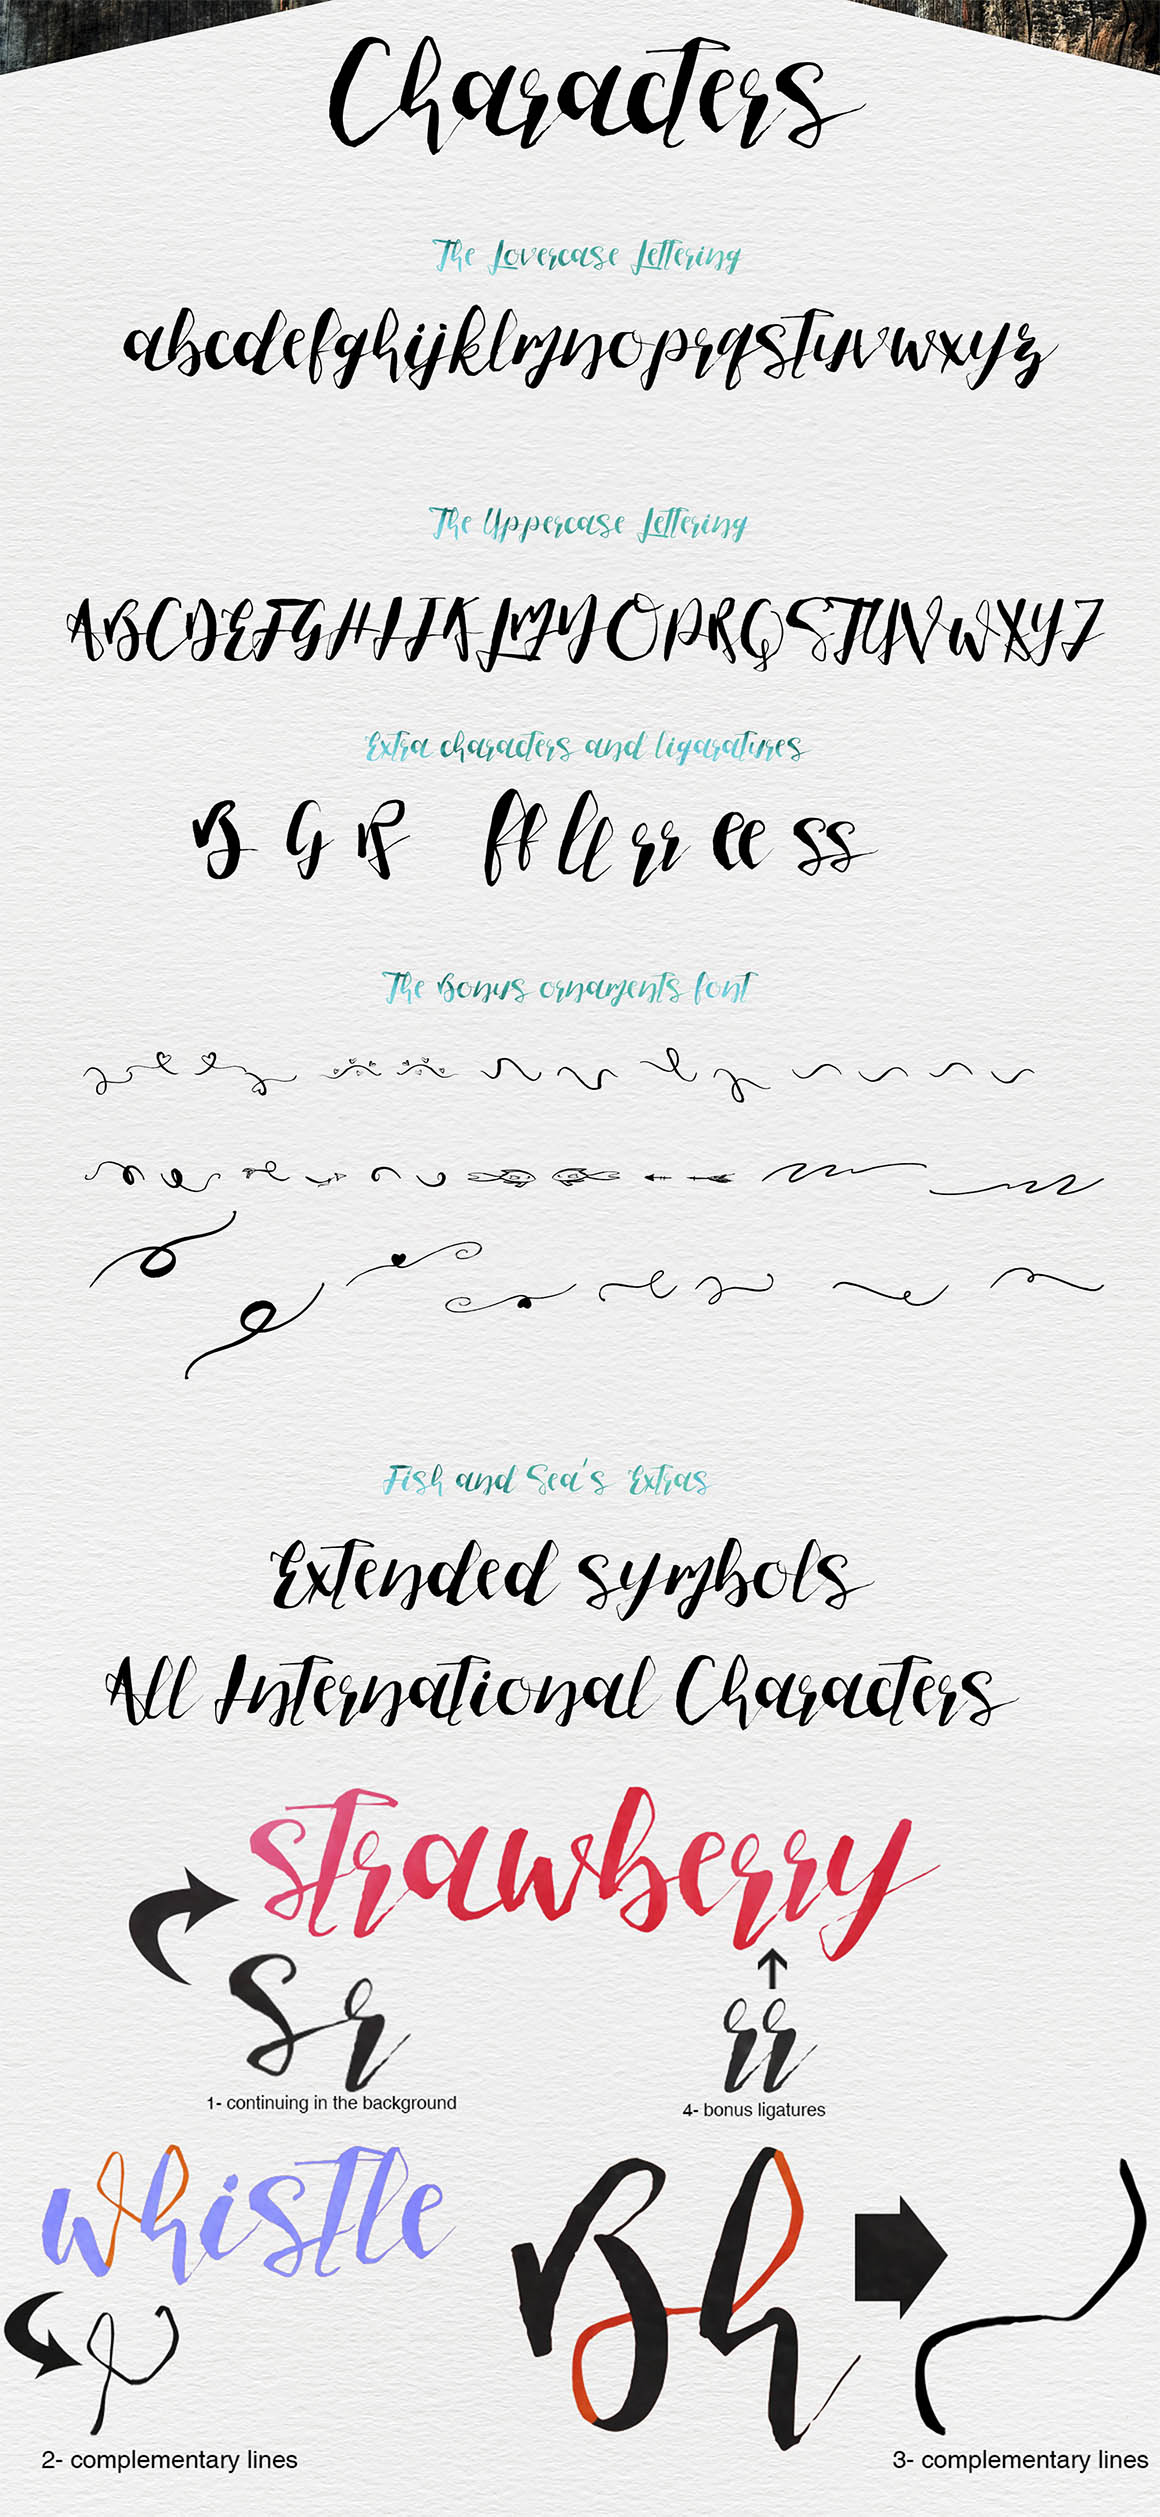 Characters
The Lovercase Lettering
abcdefghijklmnoprqstuvwxyz
The Uppercase Lettering
ABCDEFGHIJKLMNOPRQSTUVWXYZ
Extra characters and ligaratures
B G R ff ll rr ee ss
The Bonus ornaments font
Fish and Sea's Extras
Extended symbols
All International Characters
strawberry
Sr
rr
1- continuing in the background
4- bonus ligatures
whistle
Bh
2- complementary lines
3- complementary lines